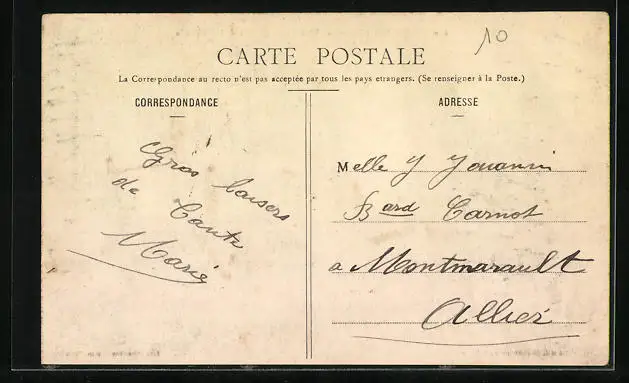 10
CARTE POSTALE
La Correspondance au recto n'est pas acceptée par tous les pays etrangers. (Se renseigner à la Poste.)
CORRESPONDANCE
Gros baisers
de Tante
Marie
ADRESSE
Melle Y Jouanin
Bard Carnot
a Montmarault
Allier